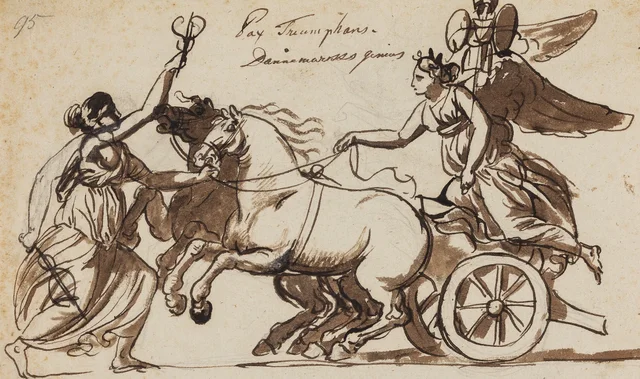 95
Pax Triumphans.
Dannemarcks genius